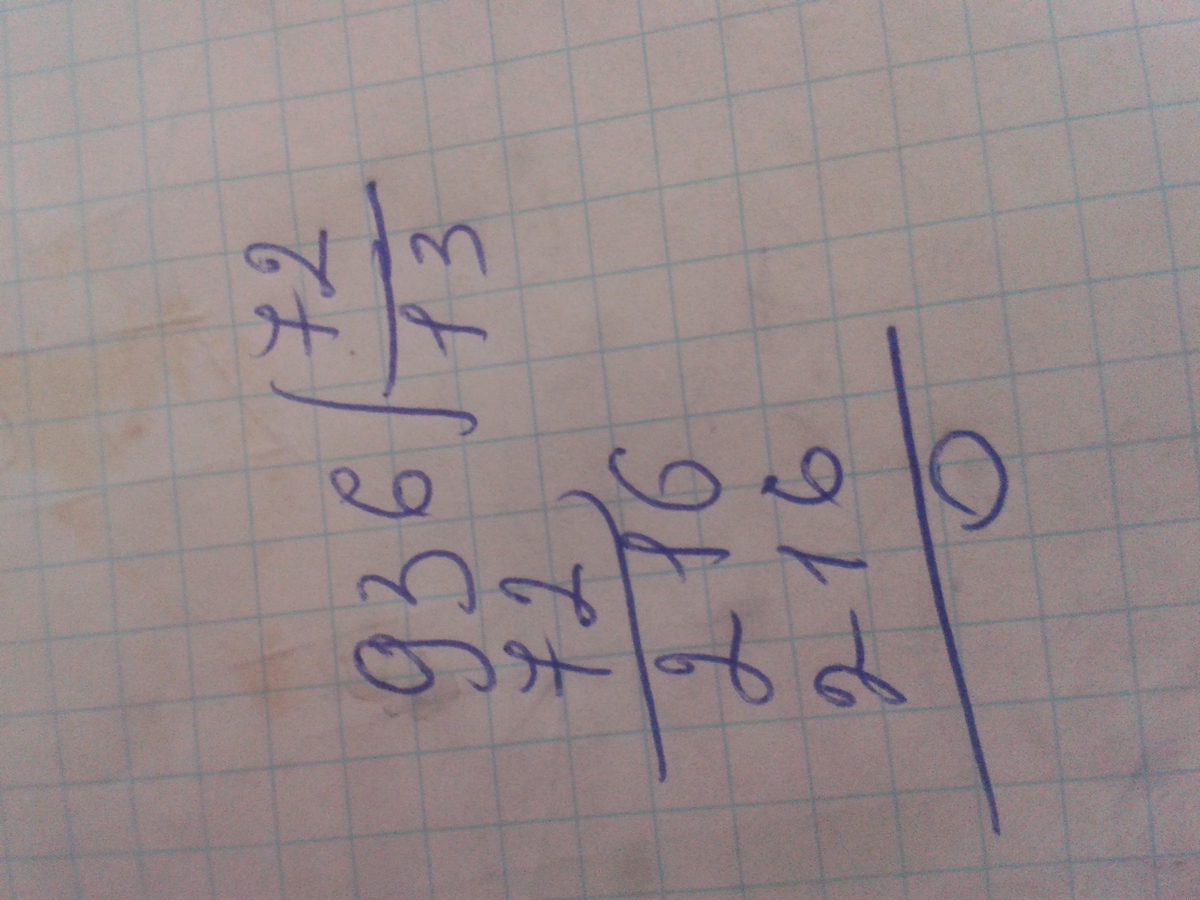 936 | 72
72 | 13
216
216
0